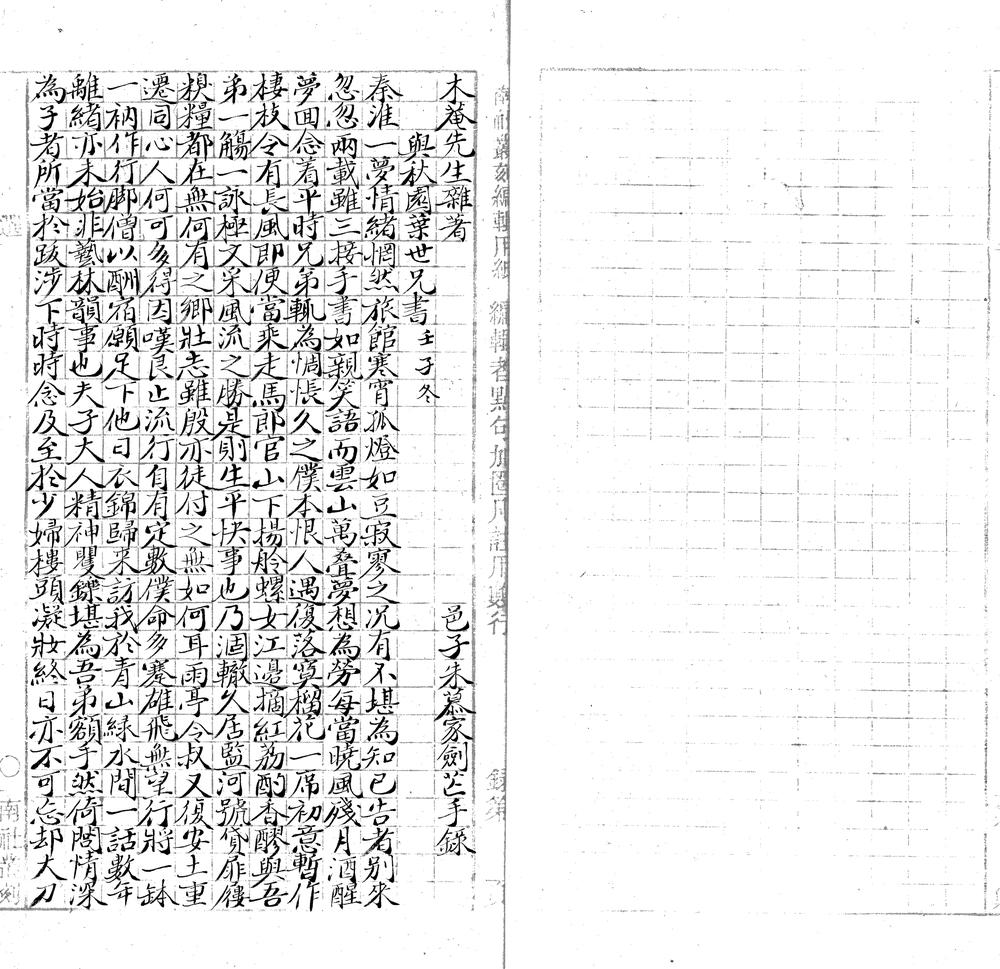 木菴先生雜著
邑子朱慕家劍芒手錄
與秋園葉世兄書 壬子冬
秦淮一夢情緒惘然旅館寒宵孤燈如豆寂寥之况有不堪為知已告者別來
忽忽兩載雖三接手書如親笑語而雲山萬叠夢想為勞每當曉風殘月酒醒
夢回念着平時兄弟輒為惆悵久之僕本恨人遇復落寞榴花一席初意暫作
棲枝令有長風即便當乘走馬郎官山下揚舲螺女江邊摘紅荔酌香醪與吾
弟一觴一詠極文采風流之勝是則生平快事也乃涸轍久居監河號貸扉屨
糗糧都在無何有之鄉壯志雖殷亦徒付之無如何耳雨亭令叔又復安土重
遷同心人何可多得因嘆艮止流行自有定數僕命多蹇雄飛無望行將一鉢
一衲作行脚僧以酬宿願足下他日衣錦歸来訪我於青山緑水間一話數年
離緒亦未始非藝林韻事也夫子大人精神矍鑠堪為吾弟額手然倚閭情深
為子者所當於跋涉下時時念及至於少婦樓頭凝妝終日亦不可忘却大刀
南社叢刻編輯用紙 編輯者點句加圈凡註用
錄第
南社叢刻